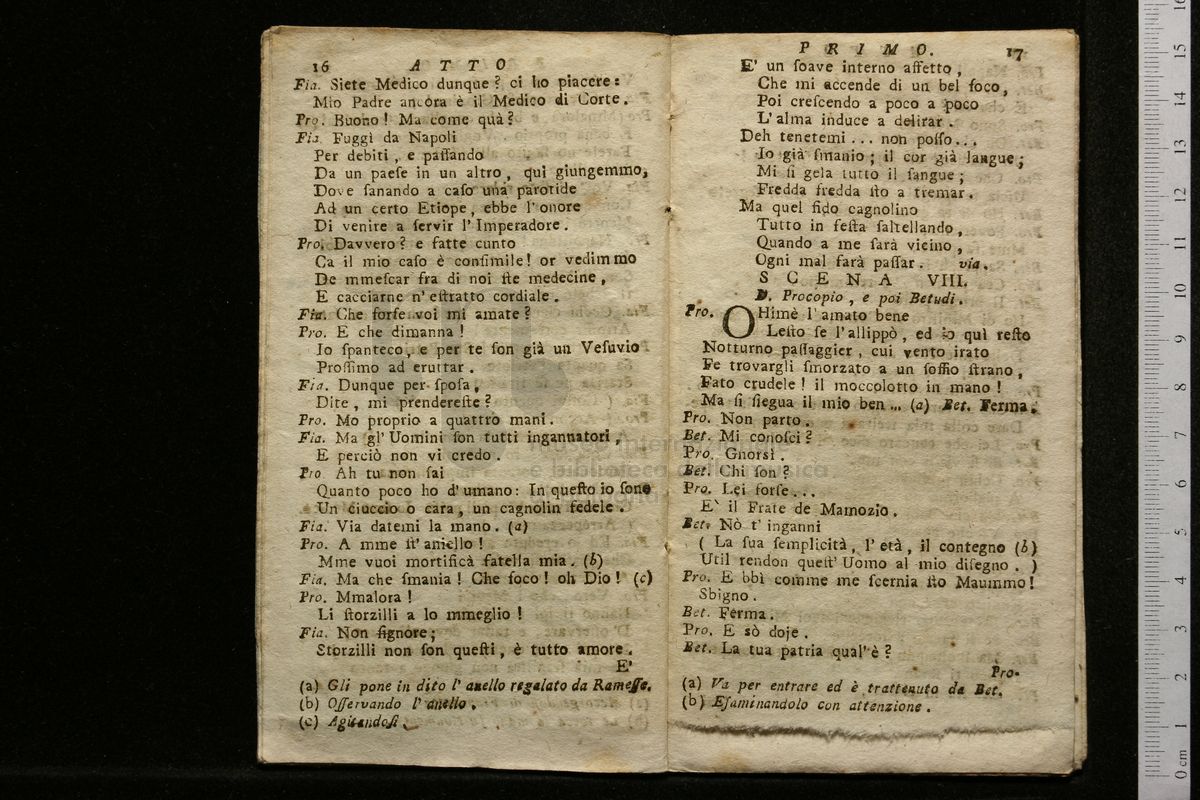 16 ATTO
Fia. Siete Medico dunque? ci ho piacere:
Mio Padre ancora è il Medico di Corte.
Pro. Buono! Ma come quà?
Fia. Fuggì da Napoli
Per debiti, e paſſando
Da un paeſe in un altro, quì giungemmo,
Dove ſanando a caſo una parotide
Ad un certo Etiope, ebbe l'onore
Di venire a ſervir l'Imperadore.
Pro. Davvero? e fatte cunto
Ca il mio caſo è conſimile! or vedimmo
De mmeſcar fra di noi ſte medecine,
E cacciarne n'eſtratto cordiale.
Fia. Che forſe voi mi amate?
Pro. E che dimanna!
Io ſpanteco, e per te ſon già un Veſuvio
Proſſimo ad eruttar.
Fia. Dunque per ſpoſa,
Dite, mi prendereſte?
Pro. Mo proprio a quattro mani.
Fia. Ma gl'Uomini ſon tutti ingannatori,
E perciò non vi credo.
Pro Ah tu non ſai
Quanto poco ho d'umano: In queſto io ſono
Un ciuccio o cara, un cagnolin fedele.
Fia. Via datemi la mano. (a)
Pro. A mme ſt'aniello!
Mme vuoi mortificà fatella mia. (b)
Fia. Ma che ſmania! Che foco! oh Dio! (c)
Pro. Mmalora!
Li ſtorzilli a lo mmeglio!
Fia. Non ſignore;
Storzilli non ſon queſti, è tutto amore.
E'
(a) Gli pone in dito l'anello regalato da Rameſſe.
(b) Oſſervando l'anello.
(c) Agitandoſi.
PRIMO. 17
E' un ſoave interno affetto,
Che mi accende di un bel foco,
Poi creſcendo a poco a poco
L'alma induce a delirar.
Deh tenetemi... non poſſo...
Io già ſmanio; il cor già langue;
Mi ſi gela tutto il ſangue;
Fredda fredda ſto a tremar.
Ma quel fido cagnolino
Tutto in feſta ſaltellando,
Quando a me ſarà vicino,
Ogni mal farà paſſar. via.
SCENA VIII.
D. Procopio, e poi Betudi.
Pro. OHimè l'amato bene
Leſto ſe l'allippò, ed io quì reſto
Notturno paſſaggier, cui vento irato
Fe trovargli ſmorzato a un ſoffio ſtrano,
Fato crudele! il moccolotto in mano!
Ma ſi ſiegua il mio ben... (a) Bet. Ferma.
Pro. Non parto.
Bet. Mi conoſci?
Pro. Gnorsì.
Bet. Chi ſon?
Pro. Lei forſe...
E' il Frate de Mamozio.
Bet. Nò t'inganni
( La ſua ſemplicità, l'età, il contegno (b)
Util rendon queſt'Uomo al mio diſegno. )
Pro. E bbì comme me ſcernia ſto Maummo!
Sbigno.
Bet. Ferma.
Pro. E sò doje.
Bet. La tua patria qual'è?
Pro.
(a) Va per entrare ed è trattenuto da Bet.
(b) Eſaminandolo con attenzione.